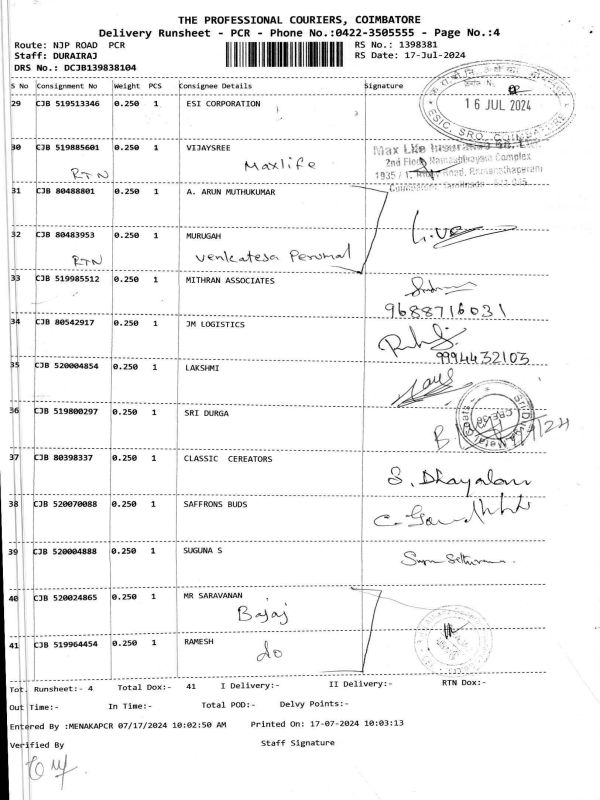 THE PROFESSIONAL COURIERS, COIMBATORE
Delivery Runsheet - PCR - Phone No.:0422-3505555 - Page No.:4
Route: NJP ROAD PCR RS No.: 1398381
Staff: DURAIRAJ RS Date: 17-Jul-2024
DRS No.: DCJB139838104
S No Consignment No Weight PCS Consignee Details Signature
29 CJB 519513346 0.250 1 ESI CORPORATION
16 JUL 2024
ESIC, SRO, COIMBATORE
30 CJB 519885601 0.250 1 VIJAYSREE
RTN Maxlife
Max Life Insurance Co. Ltd.
2nd Floor, Complex
1935 / 1, Road, Ramanathapuram
31 CJB 80488801 0.250 1 A. ARUN MUTHUKUMAR
32 CJB 80483953 0.250 1 MURUGAH
RTN Venkatesa Perumal
33 CJB 519985512 0.250 1 MITHRAN ASSOCIATES
9688716031
34 CJB 80542917 0.250 1 JM LOGISTICS
9994432103
35 CJB 520004854 0.250 1 LAKSHMI
36 CJB 519800297 0.250 1 SRI DURGA
37 CJB 80398337 0.250 1 CLASSIC CEREATORS
S. Dhayalan
38 CJB 520070088 0.250 1 SAFFRONS BUDS
39 CJB 520004888 0.250 1 SUGUNA S
40 CJB 520024865 0.250 1 MR SARAVANAN
Bajaj
41 CJB 519964454 0.250 1 RAMESH
do
Tot. Runsheet:- 4 Total Dox:- 41 I Delivery:- II Delivery:- RTN Dox:-
Out Time:- In Time:- Total POD:- Delvy Points:-
Entered By :MENAKAPCR 07/17/2024 10:02:50 AM Printed On: 17-07-2024 10:03:13
Verified By Staff Signature